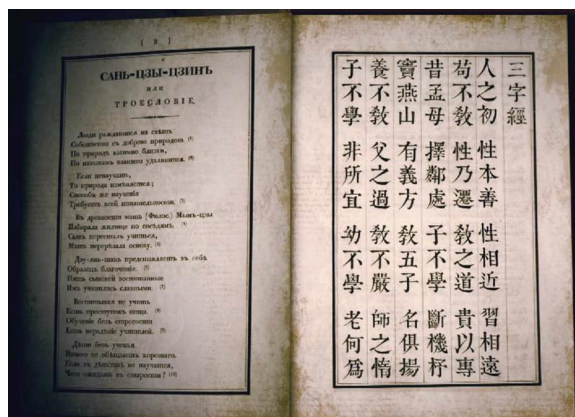 САНЬ-ЦЗЫ-ЦЗИНЪ
ИЛИ
ТРОЕСЛОВІЕ.
Люди рождаются на свѣтъ
Собственно съ доброю природою. (1)
По природѣ взаимно близки,
По навыкамъ взаимно удаляются. (2)
Если ненаучать,
То природа измѣняется;
Способъ же наученія
Требуетъ всей внимательности. (3)
Въ древности мать (Филос.) Мынъ-цзы
Избирала жилище по сосѣдямъ. (4)
Сынъ пересталъ учиться,
Мать перерѣзала основу.
Дэу-янь-шань представляетъ въ себѣ
Образецъ благочинія.
Пять сыновей воспитанные
Имъ учинились славными. (7)
Воспитывая не учить
Есть проступокъ отца. (8)
Обученіе безъ строгости
Есть нерадѣніе учителей. (9)
безъ ученья
Ничего не обѣщаютъ хорошаго.
Если въ дѣтствѣ не научатся,
Чего ожидать въ старости? (10)
三字經
人之初 性本善 性相近 習相遠
苟不敎 性乃遷 敎之道 貴以專
昔孟母 擇鄰處 子不學 斷機杼
竇燕山 有義方 敎五子 名俱揚
養不敎 父之過 敎不嚴 師之惰
子不學 非所宜 幼不學 老何爲